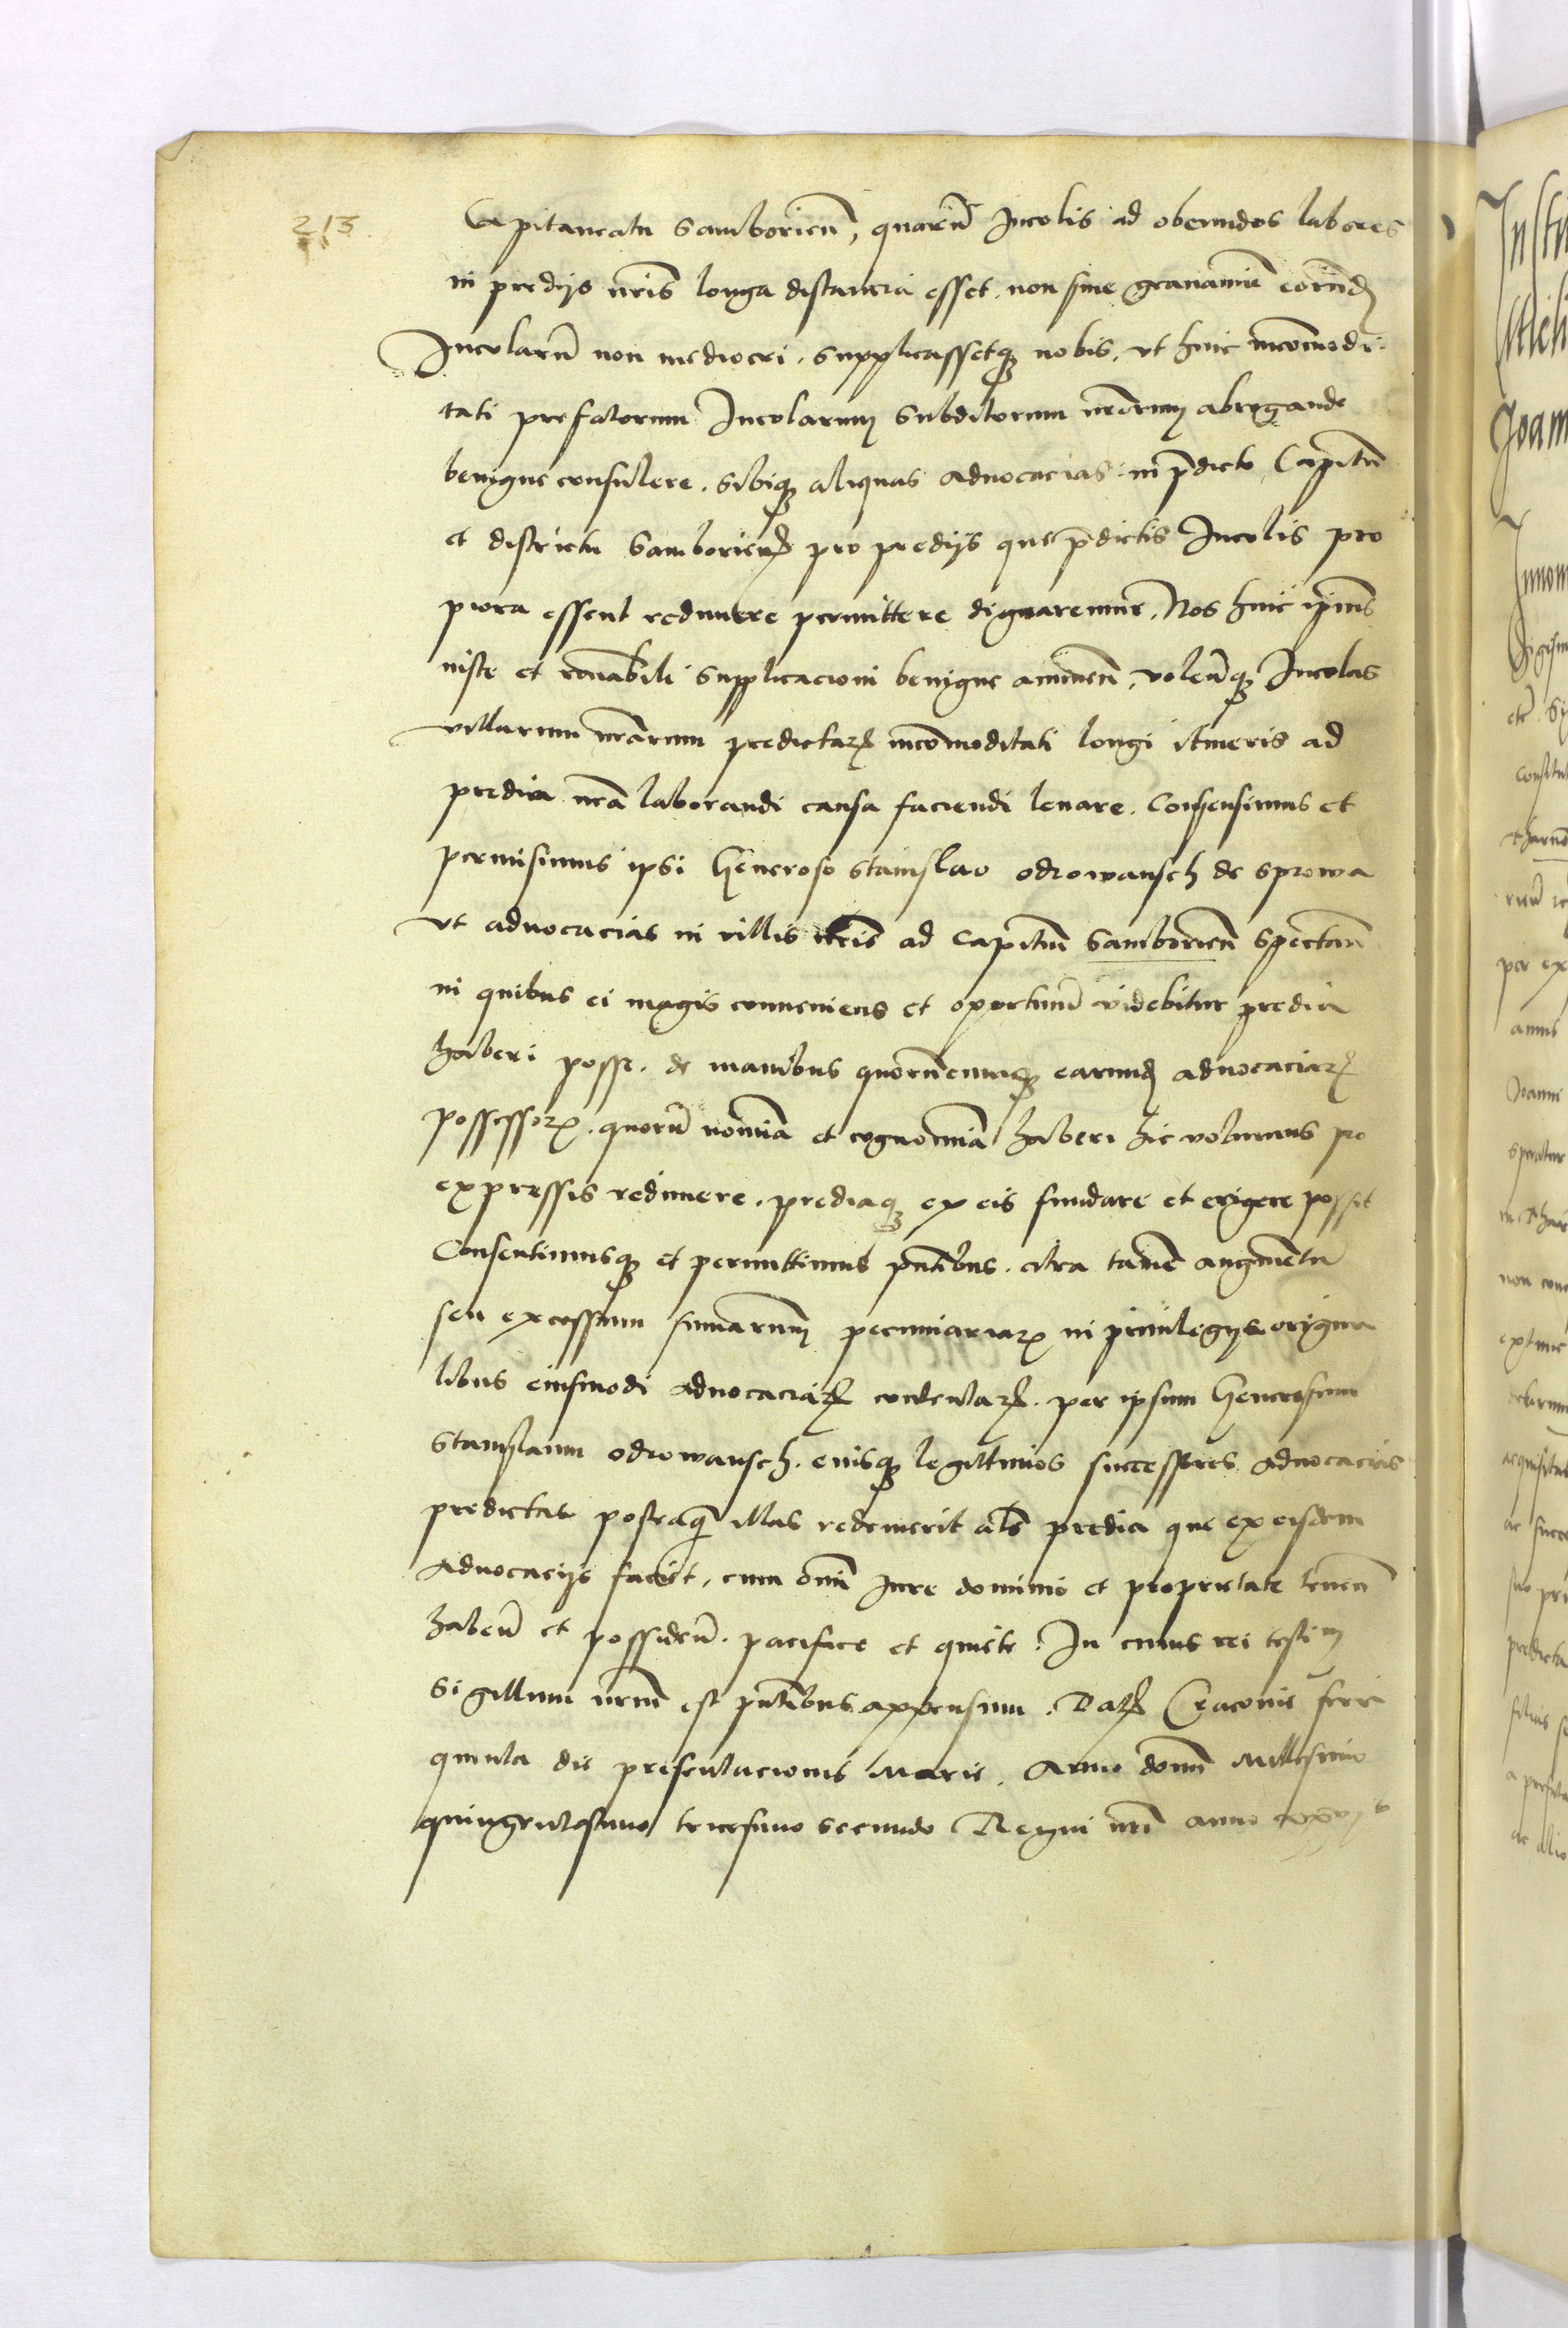 213
Capitaneatu Samborien̄, quarū Incolis ad obeundos labores
in predijs nr̄is longa distancia esset, non sine grauamīe eorūdē
Incolarū non mediocri. supplicassetqꝫ nobis, vt huic incōmodi
tati prefatorum Incolarum Subditorum nr̄orum abrogande
benigne consulere. sibiqꝫ aliquas aduocacias in p̄dicto Capitū
et districtu Samborien̄ pro predijs que p̄dictis Incolis pro
piora essent redimere permittere dignaremur. Nos huic ip̄ius
iuste et rōnabili supplicacioni benigne annuen̄, volen̄qꝫ Incolas
villarum nr̄arum predictarꝫ incōmoditati longi itineris ad
predia nr̄a laborandi causa faciendi leuare. Consensimus et
permisimus ipsi Generoso Stanislao odrowansch de sprowa
vt aduocacias in villis nr̄is ad Capitūm Samborien̄ spectan̄
in quibus ei magis conueniens et oportunū videbitur predia
haberi posse. de manibus quorūcumqꝫ earumdē aduocaciarꝫ
possessorꝫ. quorū nomīa et cognomīa haberi hic volumus pro
expressis redimere. prediaqꝫ ex eis fundare et erigere posset
Consentimusqꝫ et permittimus pn̄tibus. citra tamē augmentū
seu excessum sum̄arum pecuniariarꝫ in priuilegijs origina
libus eiusmodi aduocaciarꝫ contentarꝫ. per ipsum Generosum
Stanislaum odrowansch. eiusqꝫ legittimos successores aduocacias
predictas posteaqꝫ illas redemerit al̄s predia que ex eisdem
aduocacijs faciet, cum om̄i Iure dominio et proprietate tenen̄
haben̄ et possiden̄. pacifice et quiete. In cuius rei testim
Sigillum nr̄m est pn̄tibus appensum. Datꝫ Cracouie feria
quinta die presentacionis Marie. Anno domī Millesimo
quingentesimo tricesimo secundo Regni nr̄i anno